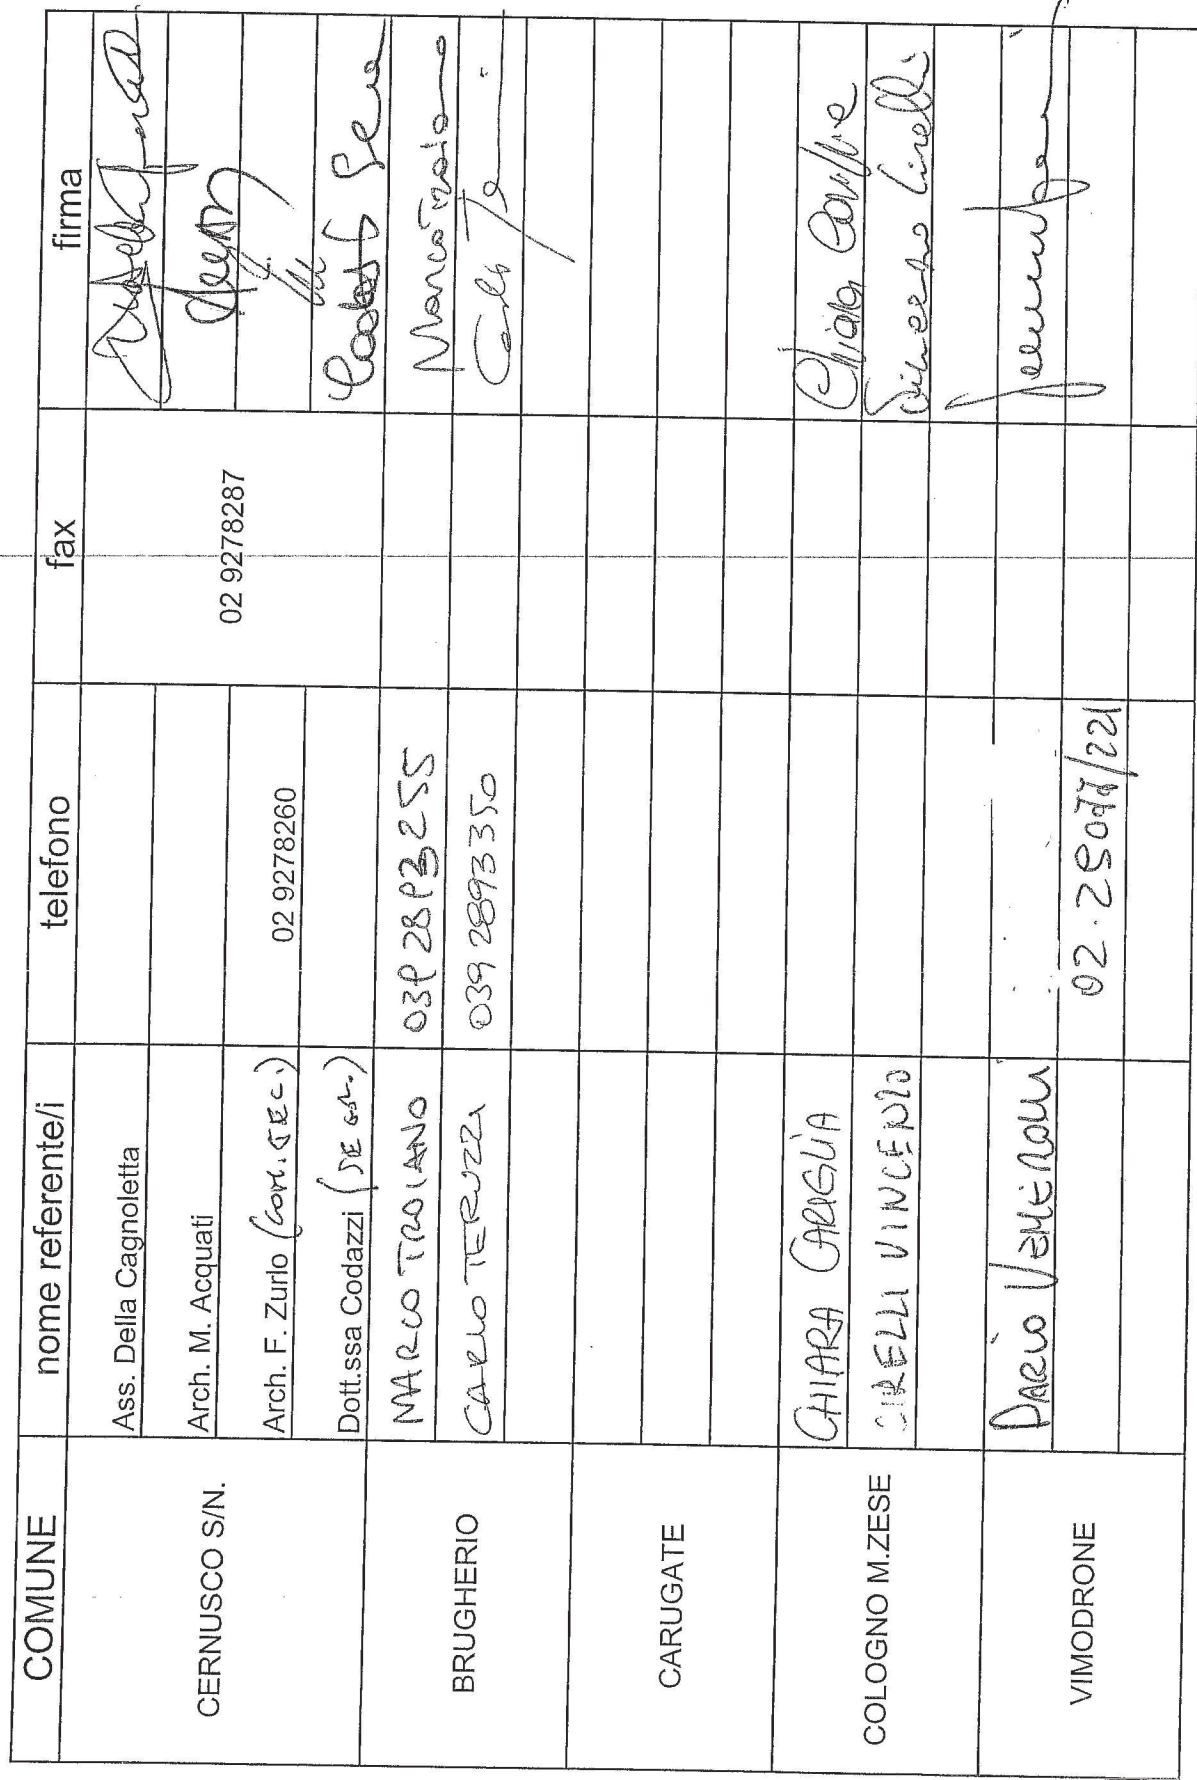 COMUNE nome referente/i telefono fax firma
CERNUSCO S/N.
Ass. Della Cagnoletta
Arch. M. Acquati
Arch. F. Zurlo (COM. TEC.) 02 9278260 02 9278287
Dott.ssa Codazzi
BRUGHERIO
MARCO TROIANO 039 2893255 Marco Troiano
CARLO TERUZZI 039 2893350
CARUGATE
COLOGNO M.ZESE
CHIARA CARIGLIA Chiara
CIRELLI VINCENZO Vincenzo Cirelli
VIMODRONE
DARIO VEMENOLI
02.25077/221